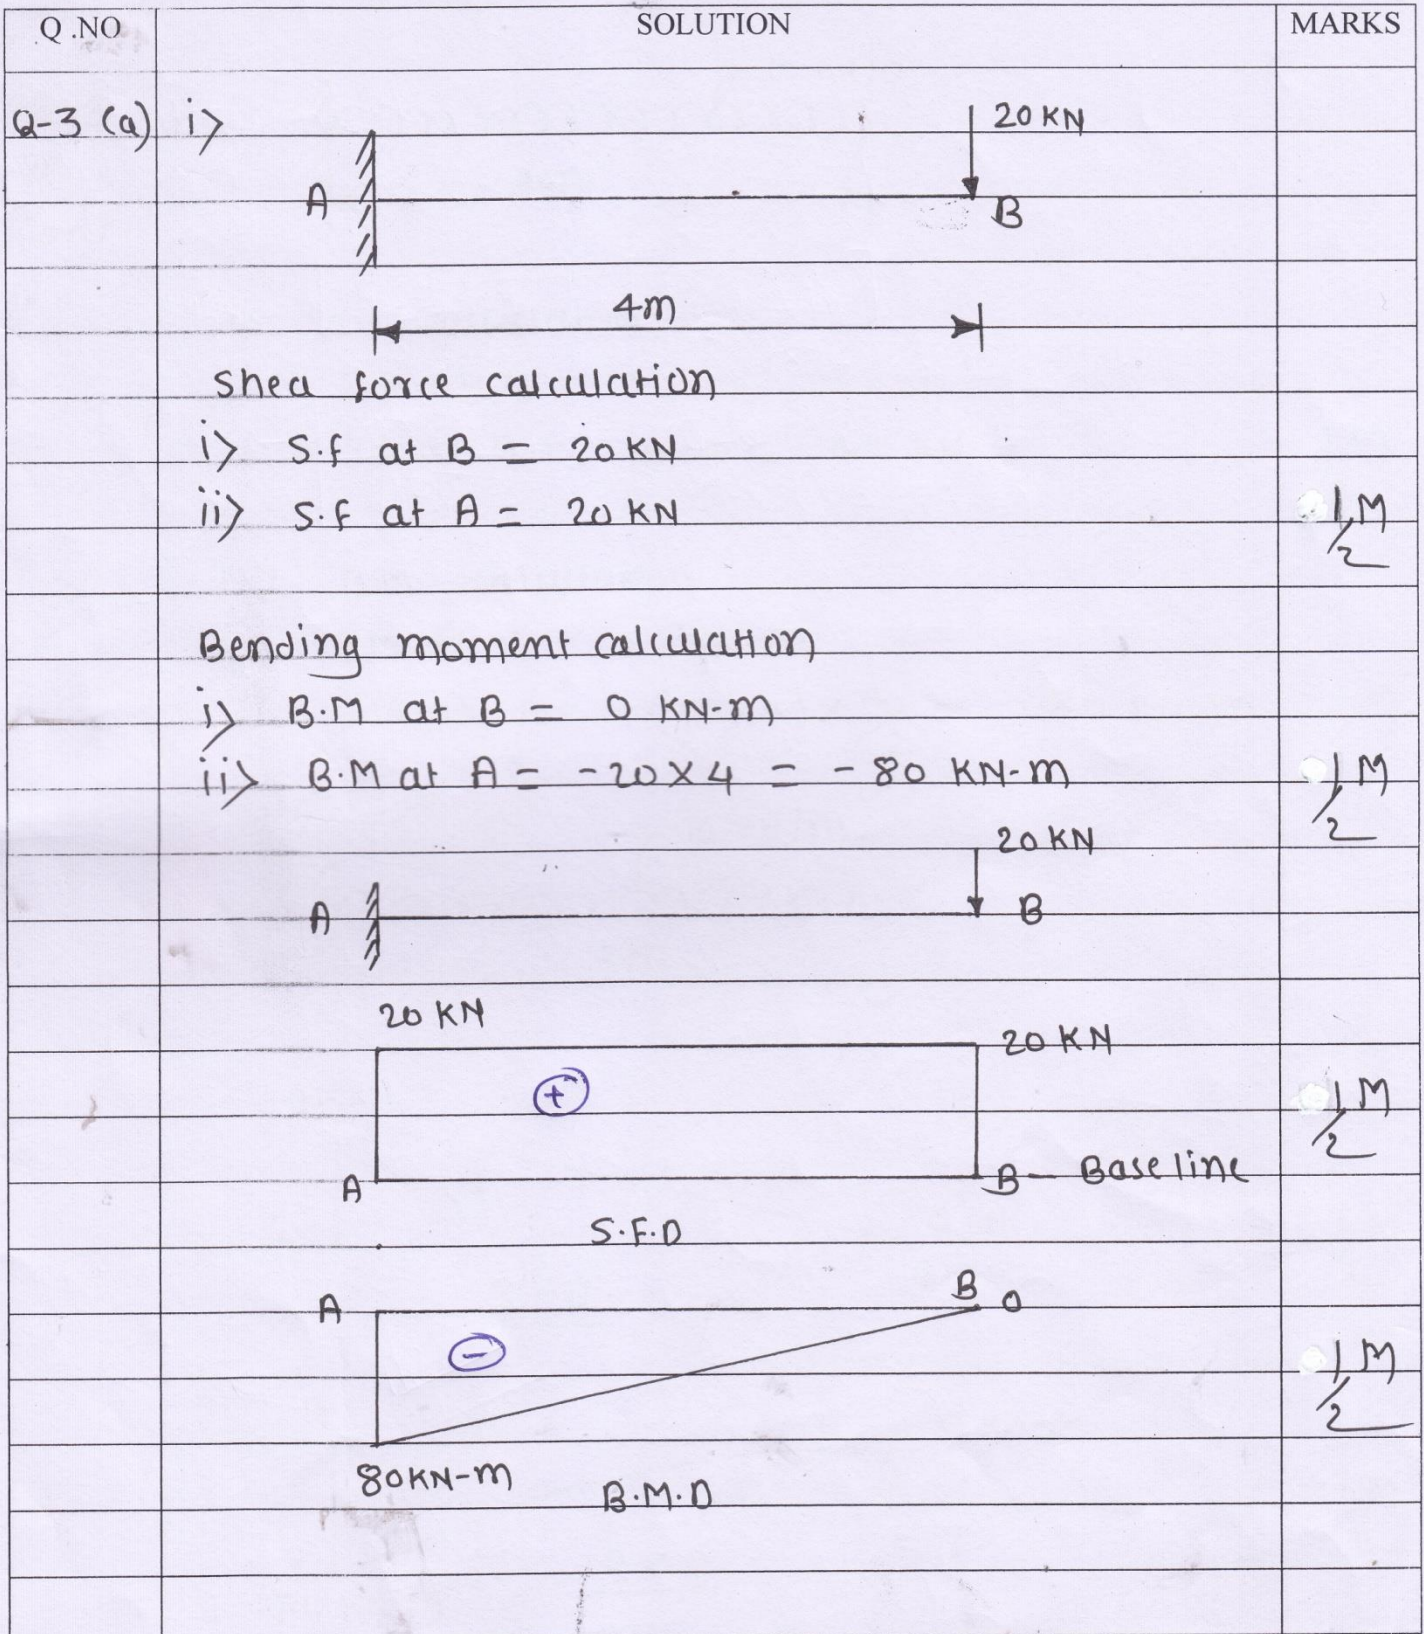 Q.NO SOLUTION MARKS
Q-3 (a) i>
20 KN
A
B
4m
Shea force calculation
i> S.f at B = 20 KN
ii> S.f at A = 20 KN
1/2 M
Bending moment calculation
i> B.M at B = 0 KN-m
ii> B.M at A = -20 X 4 = - 80 KN-m
1/2 M
20 KN
A
B
20 KN
20 KN
+
1/2 M
A
B - Base line
S.F.D
A
B 0
-
1/2 M
80KN-m
B.M.D